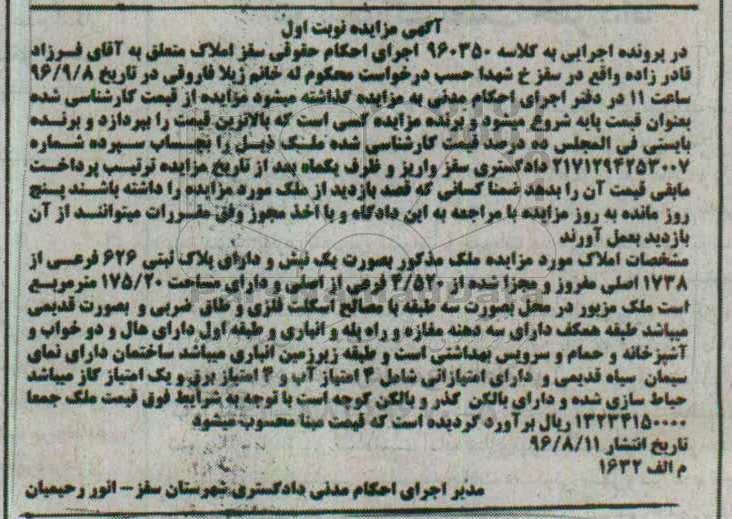 آگهی مزایده نوبت اول
در پرونده اجرایی به کلاسه ۹۶۰۳۵۰ اجرای احکام حقوقی سقز املاک متعلق به آقای فرزاد
قادر زاده واقع در سقز خ شهدا حسب درخواست محکوم له خانم ژیلا فاروقی در تاریخ ۹۶/۹/۸
ساعت ۱۱ در دفتر اجرای احکام مدنی به مزایده گذاشته میشود مزایده از قیمت کارشناسی شده
بعنوان قیمت پایه شروع میشود و برنده مزایده کسی است که بالاترین قیمت را بپردازد و برنده
بایستی فی المجلس ده درصد قیمت کارشناسی شده ملک ذیل را بحساب سپرده شماره
۲۱۷۱۲۹۴۲۵۳۰۰۷ دادگستری سقز واریز و ظرف یکماه بعد از تاریخ مزایده ترتیب پرداخت
مابقی قیمت آن را بدهد ضمنا کسانی که قصد بازدید از ملک مورد مزایده را داشته باشند پنج
روز مانده به روز مزایده با مراجعه به این دادگاه و با اخذ مجوز وفق مقررات میتوانند از آن
بازدید بعمل آورند
مشخصات املاک مورد مزایده ملک مذکور بصورت یک نبش و دارای پلاک ثبتی ۶۲۶ فرعی از
۱۷۳۸ اصلی مفروز و مجزا شده از ۲/۵۲۰ فرعی از اصلی و دارای مساحت ۱۷۵/۲۰ مترمربع
است ملک مزبور در محل بصورت سه طبقه با مصالح اسکلت فلزی و طاق ضربی و بصورت قدیمی
میباشد طبقه همکف دارای سه دهنه مغازه و راه پله و انباری و طبقه اول دارای هال و دو خواب و
آشپزخانه و حمام و سرویس بهداشتی است و طبقه زیرزمین انباری میباشد ساختمان دارای نمای
سیمان سیاه قدیمی و دارای امتیازاتی شامل ۴ امتیاز آب و ۴ امتیاز برق و یک امتیاز گاز میباشد
حیاط سازی شده و دارای بالکن گذر و بالکن کوچه است با توجه به شرایط فوق قیمت ملک جمعا
۱۳۲۳۴۱۵۰۰۰۰ ریال برآورد گردیده است که قیمت مبنا محسوب میشود
تاریخ انتشار ۹۶/۸/۱۱
م الف ۱۶۳۲
مدیر اجرای احکام مدنی دادگستری شهرستان سقز – انور رحیمیان